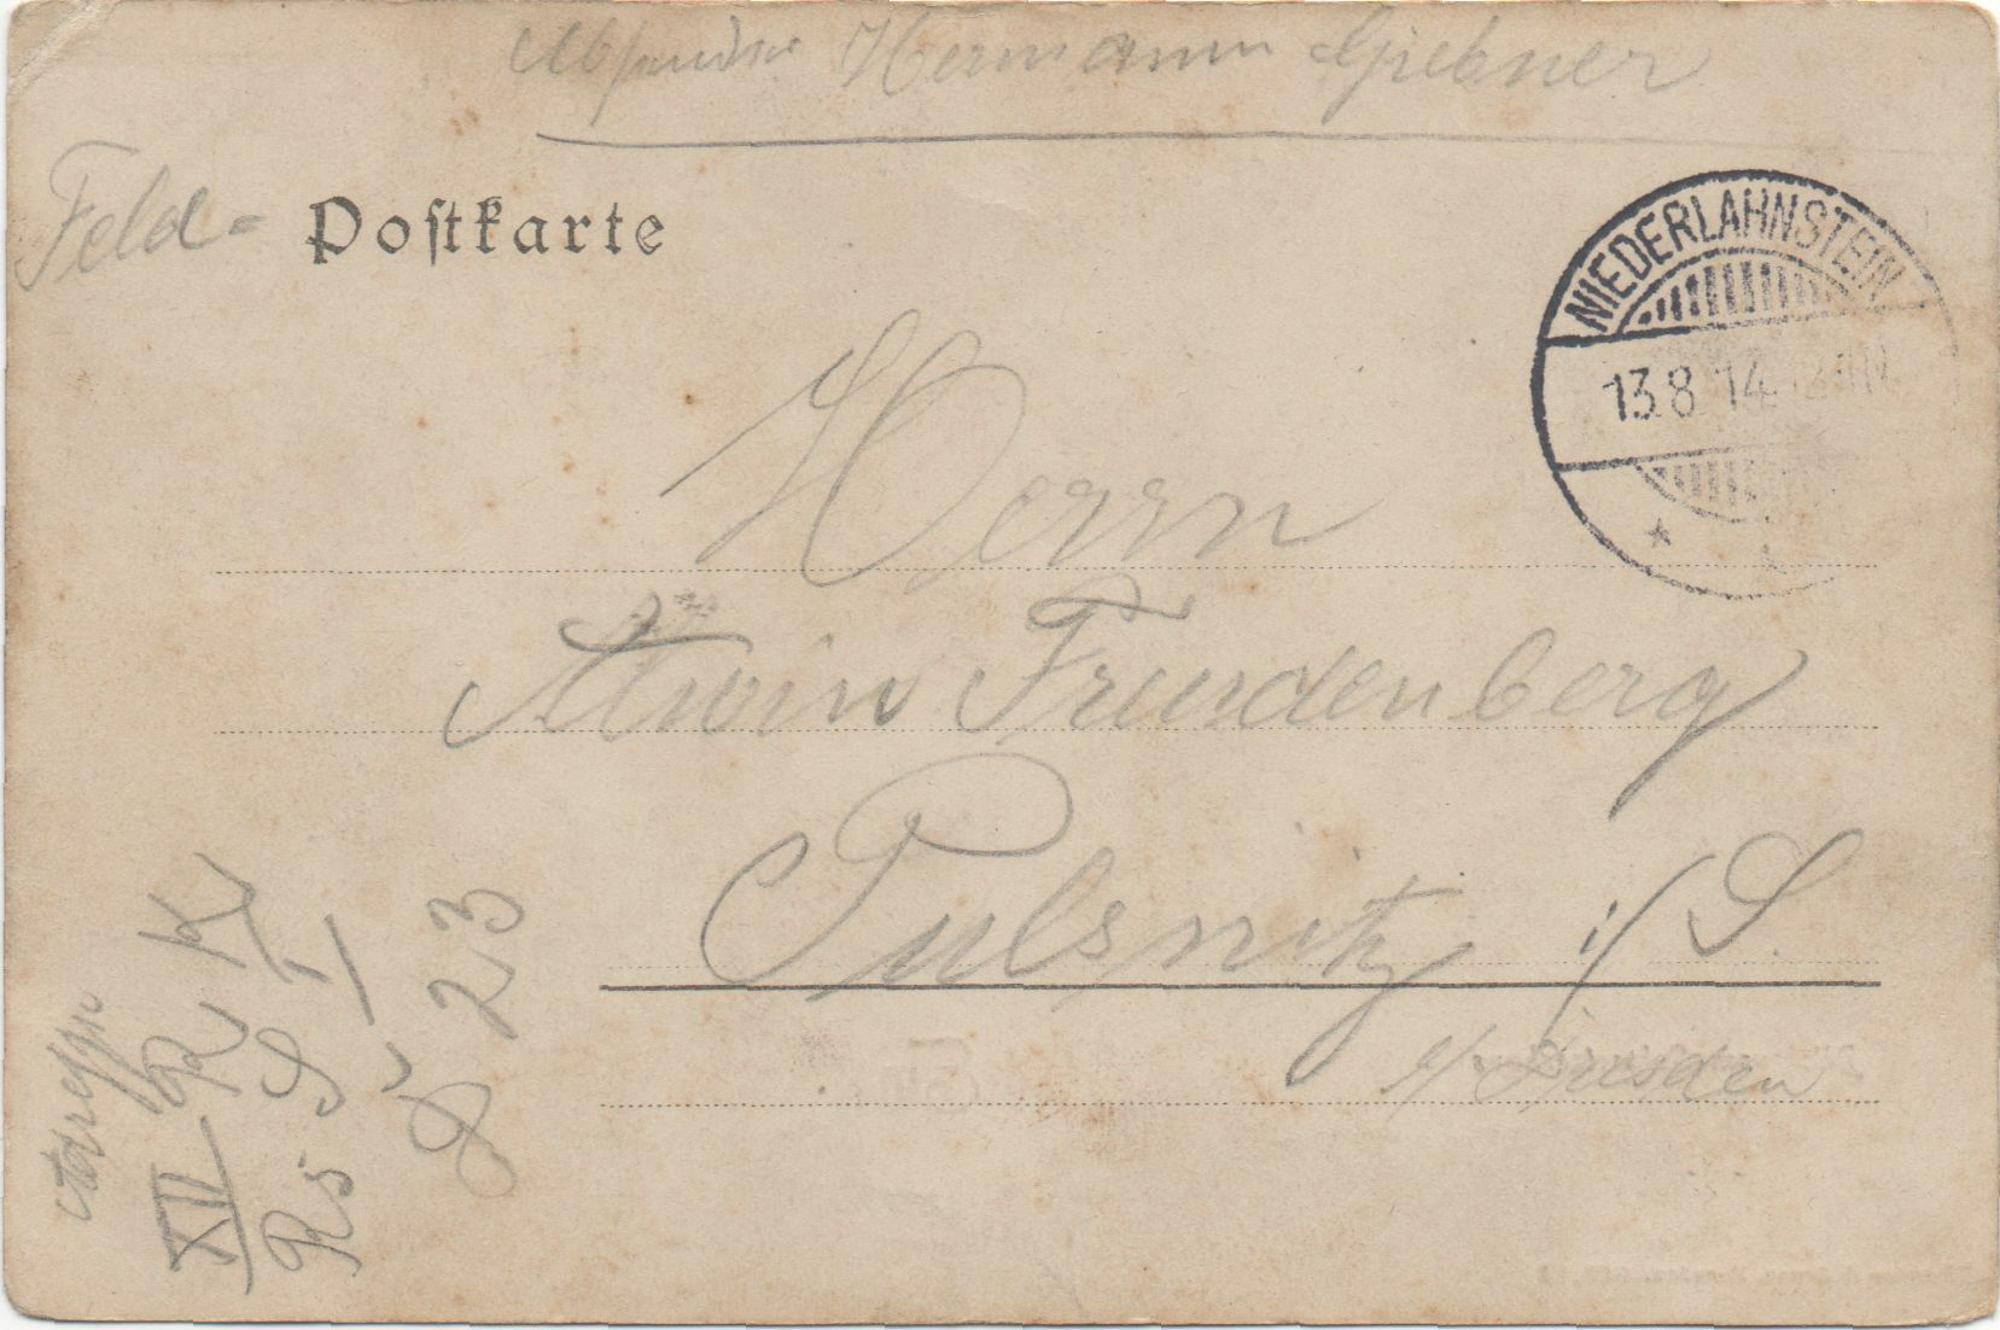 Absender Hermann Giebner
Feld- Postkarte
NIEDERLAHNSTEIN
13.8 14
Herrn
Alwin Freudenberg
Pulsnitz i/S.
b/ Dresden
Adresse
XII R K
R S I
23